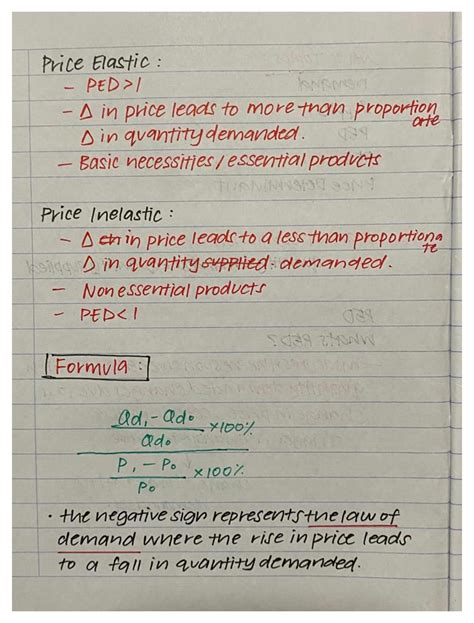 Price Elastic :
- PED>1
- Δ in price leads to more than proportionate
Δ in quantity demanded.
- Basic necessities/essential products
Price Inelastic :
- Δ in price leads to a less than proportionate
Δ in quantity supplied. demanded.
- Non essential products
- PED<1
Formula :
Qd₁ - Qd₀
Qd₀
×100%
P₁ - P₀
P₀
×100%
• the negative sign represents the law of
demand where the rise in price leads
to a fall in quantity demanded.